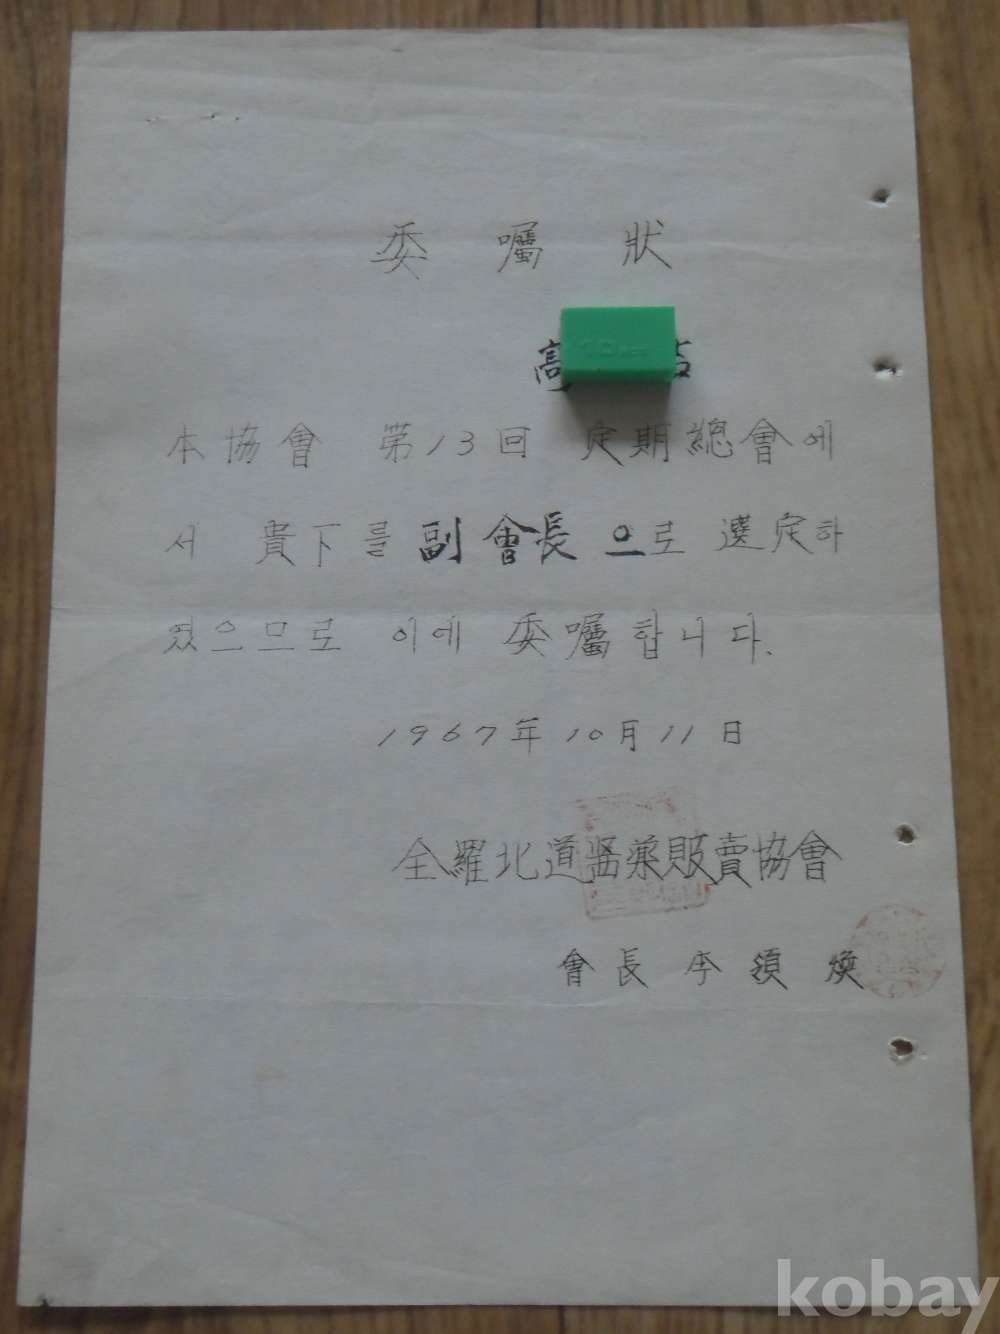 委囑狀
高
本協會 第13回 定期總會에
서 貴下를 副會長으로 選定하
였으므로 이에 委囑합니다.
1967年10月11日
全羅北道醫藥販賣協會
會長 李須煥
kobay